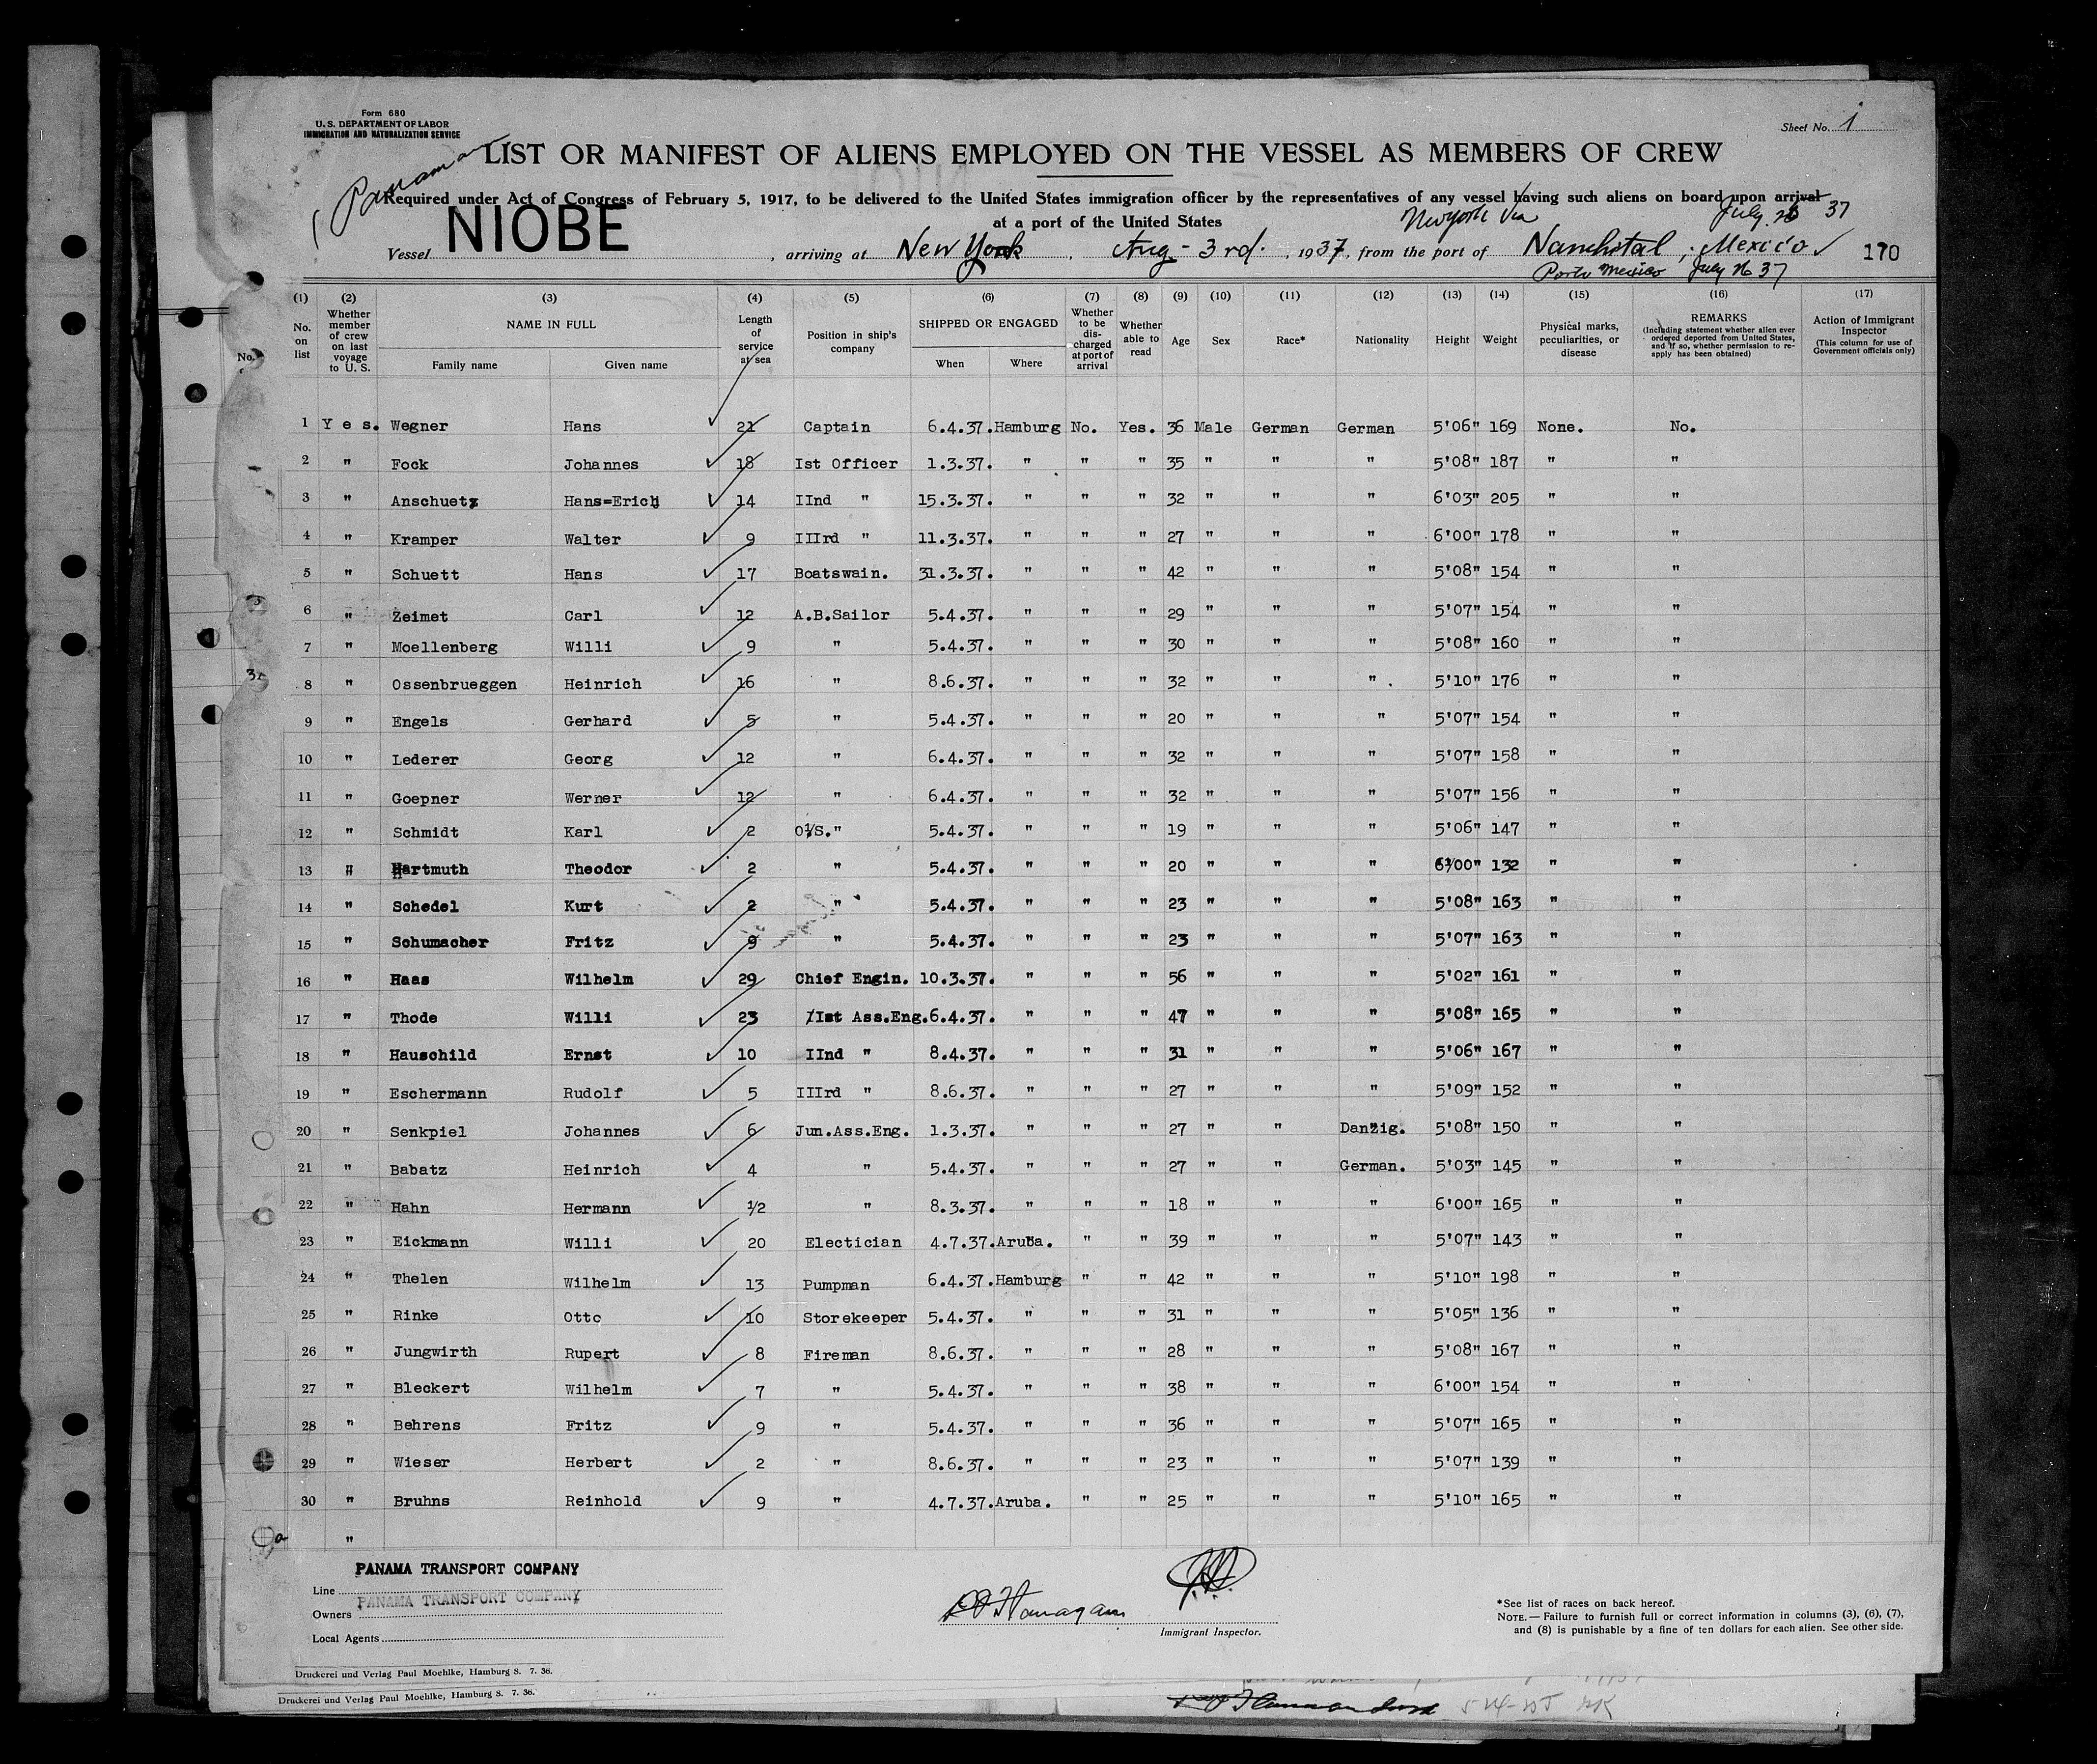 Form 680
U. S. DEPARTMENT OF LABOR
IMMIGRATION AND NATURALIZATION SERVICE
Sheet No. 1
LIST OR MANIFEST OF ALIENS EMPLOYED ON THE VESSEL AS MEMBERS OF CREW
Panaman
Required under Act of Congress of February 5, 1917, to be delivered to the United States immigration officer by the representatives of any vessel having such aliens on board upon arrival
at a port of the United States
New York Via July 26 37
Vessel NIOBE, arriving at New York, Aug - 3rd. 1937, from the port of Nanchital, Mexico 170
Porto Mexico July 26 37
(1) (2) (3) (4) (5) (6) (7) (8) (9) (10) (11) (12) (13) (14) (15) (16) (17)
No. on list Whether member of crew on last voyage to U. S. NAME IN FULL Family name Given name Length of service at sea Position in ship's company SHIPPED OR ENGAGED When Where Whether to be discharged at port of arrival Whether able to read Age Sex Race* Nationality Height Weight Physical marks, peculiarities, or disease REMARKS (Including statement whether alien ever ordered deported from United States, and if so, whether permission to reapply has been obtained) Action of Immigrant Inspector (This column for use of Government officials only)
No.
1 Yes. Wegner Hans 21 Captain 6.4.37. Hamburg No. Yes. 36 Male German German 5'06" 169 None. No.
2 " Fock Johannes 18 Ist Officer 1.3.37. " " " 35 " " " 5'08" 187 " "
3 " Anschuetz Hans=Erich 14 IInd " 15.3.37. " " " 32 " " " 6'03" 205 " "
4 " Kramper Walter 9 IIIrd " 11.3.37. " " " 27 " " " 6'00" 178 " "
5 " Schuett Hans 17 Boatswain. 31.3.37. " " " 42 " " " 5'08" 154 " "
6 " Zeimet Carl 12 A.B.Sailor 5.4.37. " " " 29 " " " 5'07" 154 " "
7 " Moellenberg Willi 9 " 5.4.37. " " " 30 " " " 5'08" 160 " "
8 " Ossenbrueggen Heinrich 16 " 8.6.37. " " " 32 " " " 5'10" 176 " "
9 " Engels Gerhard 5 " 5.4.37. " " " 20 " " " 5'07" 154 " "
10 " Lederer Georg 12 " 6.4.37. " " " 32 " " " 5'07" 158 " "
11 " Goepner Werner 12 " 6.4.37. " " " 32 " " " 5'07" 156 " "
12 " Schmidt Karl 2 O/S." 5.4.37. " " " 19 " " " 5'06" 147 " "
13 " Hartmuth Theodor 2 " 5.4.37. " " " 20 " " " 6'00" 132 " "
14 " Schedel Kurt 2 " 5.4.37. " " " 23 " " " 5'08" 163 " "
15 " Schumacher Fritz 9 " 5.4.37. " " " 23 " " " 5'07" 163 " "
16 " Haas Wilhelm 29 Chief Engin. 10.3.37. " " " 56 " " " 5'02" 161 " "
17 " Thode Willi 23 Ist Ass.Eng. 6.4.37. " " " 47 " " " 5'08" 165 " "
18 " Hauschild Ernst 10 IInd " 8.4.37. " " " 31 " " " 5'06" 167 " "
19 " Eschermann Rudolf 5 IIIrd " 8.6.37. " " " 27 " " " 5'09" 152 " "
20 " Senkpiel Johannes 6 Jun.Ass.Eng. 1.3.37. " " " 27 " " Danzig. 5'08" 150 " "
21 " Babatz Heinrich 4 " 5.4.37. " " " 27 " " German. 5'03" 145 " "
22 " Hahn Hermann 1/2 " 8.3.37. " " " 18 " " " 6'00" 165 " "
23 " Eickmann Willi 20 Electician 4.7.37. Aruba. " " 39 " " " 5'07" 143 " "
24 " Thelen Wilhelm 13 Pumpman 6.4.37. Hamburg " " 42 " " " 5'10" 198 " "
25 " Rinke Otto 10 Storekeeper 5.4.37. " " " 31 " " " 5'05" 136 " "
26 " Jungwirth Rupert 8 Fireman 8.6.37. " " " 28 " " " 5'08" 167 " "
27 " Bleckert Wilhelm 7 " 5.4.37. " " " 38 " " " 6'00" 154 " "
28 " Behrens Fritz 9 " 5.4.37. " " " 36 " " " 5'07" 165 " "
29 " Wieser Herbert 2 " 8.6.37. " " " 23 " " " 5'07" 139 " "
30 " Bruhns Reinhold 9 " 4.7.37. Aruba. " " 25 " " " 5'10" 165 " "
"
PANAMA TRANSPORT COMPANY
Line
PANAMA TRANSPORT COMPANY
Owners
Local Agents
Immigrant Inspector.
*See list of races on back hereof.
NOTE.— Failure to furnish full or correct information in columns (3), (6), (7),
and (8) is punishable by a fine of ten dollars for each alien. See other side.
Druckerei und Verlag Paul Moehlke, Hamburg 8. 7. 36.
Druckerei und Verlag Paul Moehlke, Hamburg 8. 7. 36.